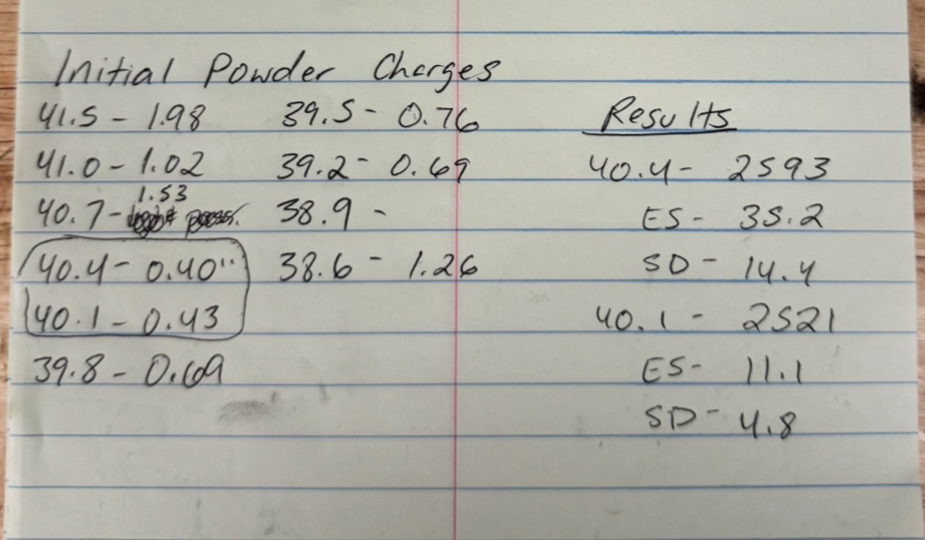 Initial Powder Charges
41.5 - 1.98
41.0 - 1.02
1.53
40.7 -
40.4 - 0.40"
40.1 - 0.43
39.8 - 0.69
39.5 - 0.76
39.2 - 0.69
38.9 -
38.6 - 1.26
Results
40.4 - 2593
ES - 35.2
SD - 14.4
40.1 - 2521
ES - 11.1
SD - 4.8